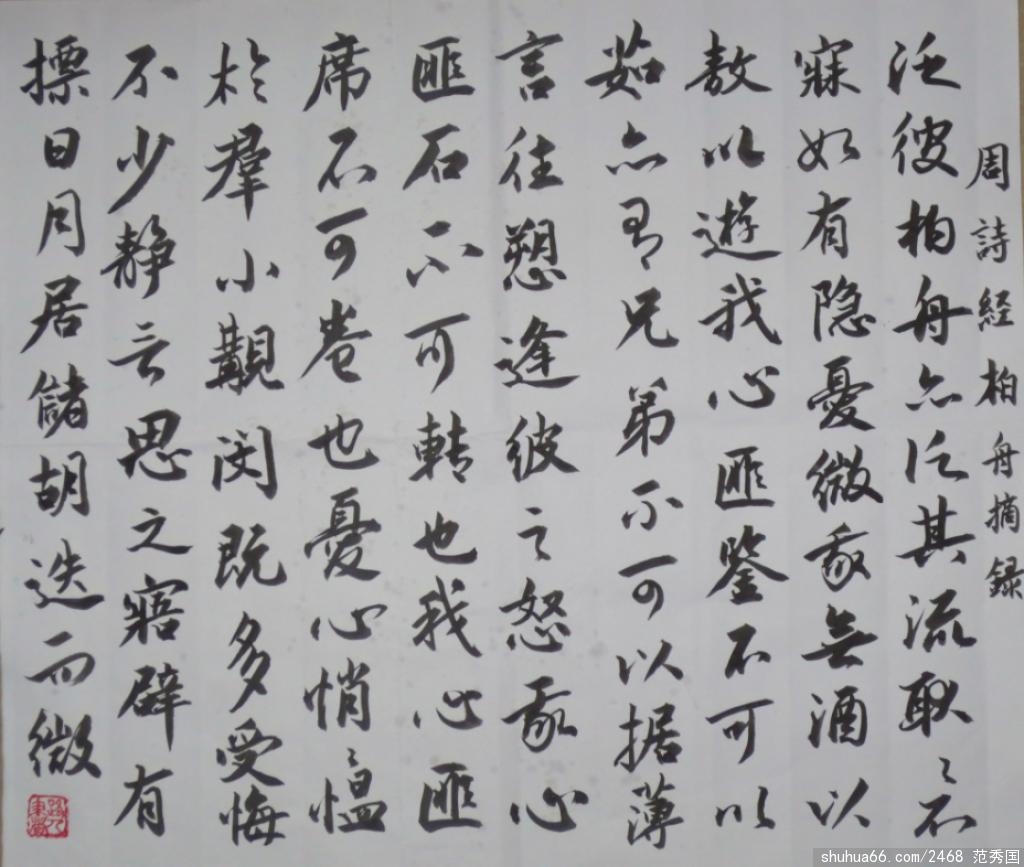 周詩経柏舟摘録
泛彼柏舟亦汎其流耿々不
寐如有隐憂微我無酒以
敖以遊我心匪鑒不可以
茹亦有兄弟不可以据薄
言往愬逢彼之怒我心
匪石不可轉也我心匪
席不可卷也憂心悄々愠
於羣小覯閔既多受悔
不少静言思之寤辟有
摽日月居儲胡迭而微
shuhua66.com/2468 范秀国